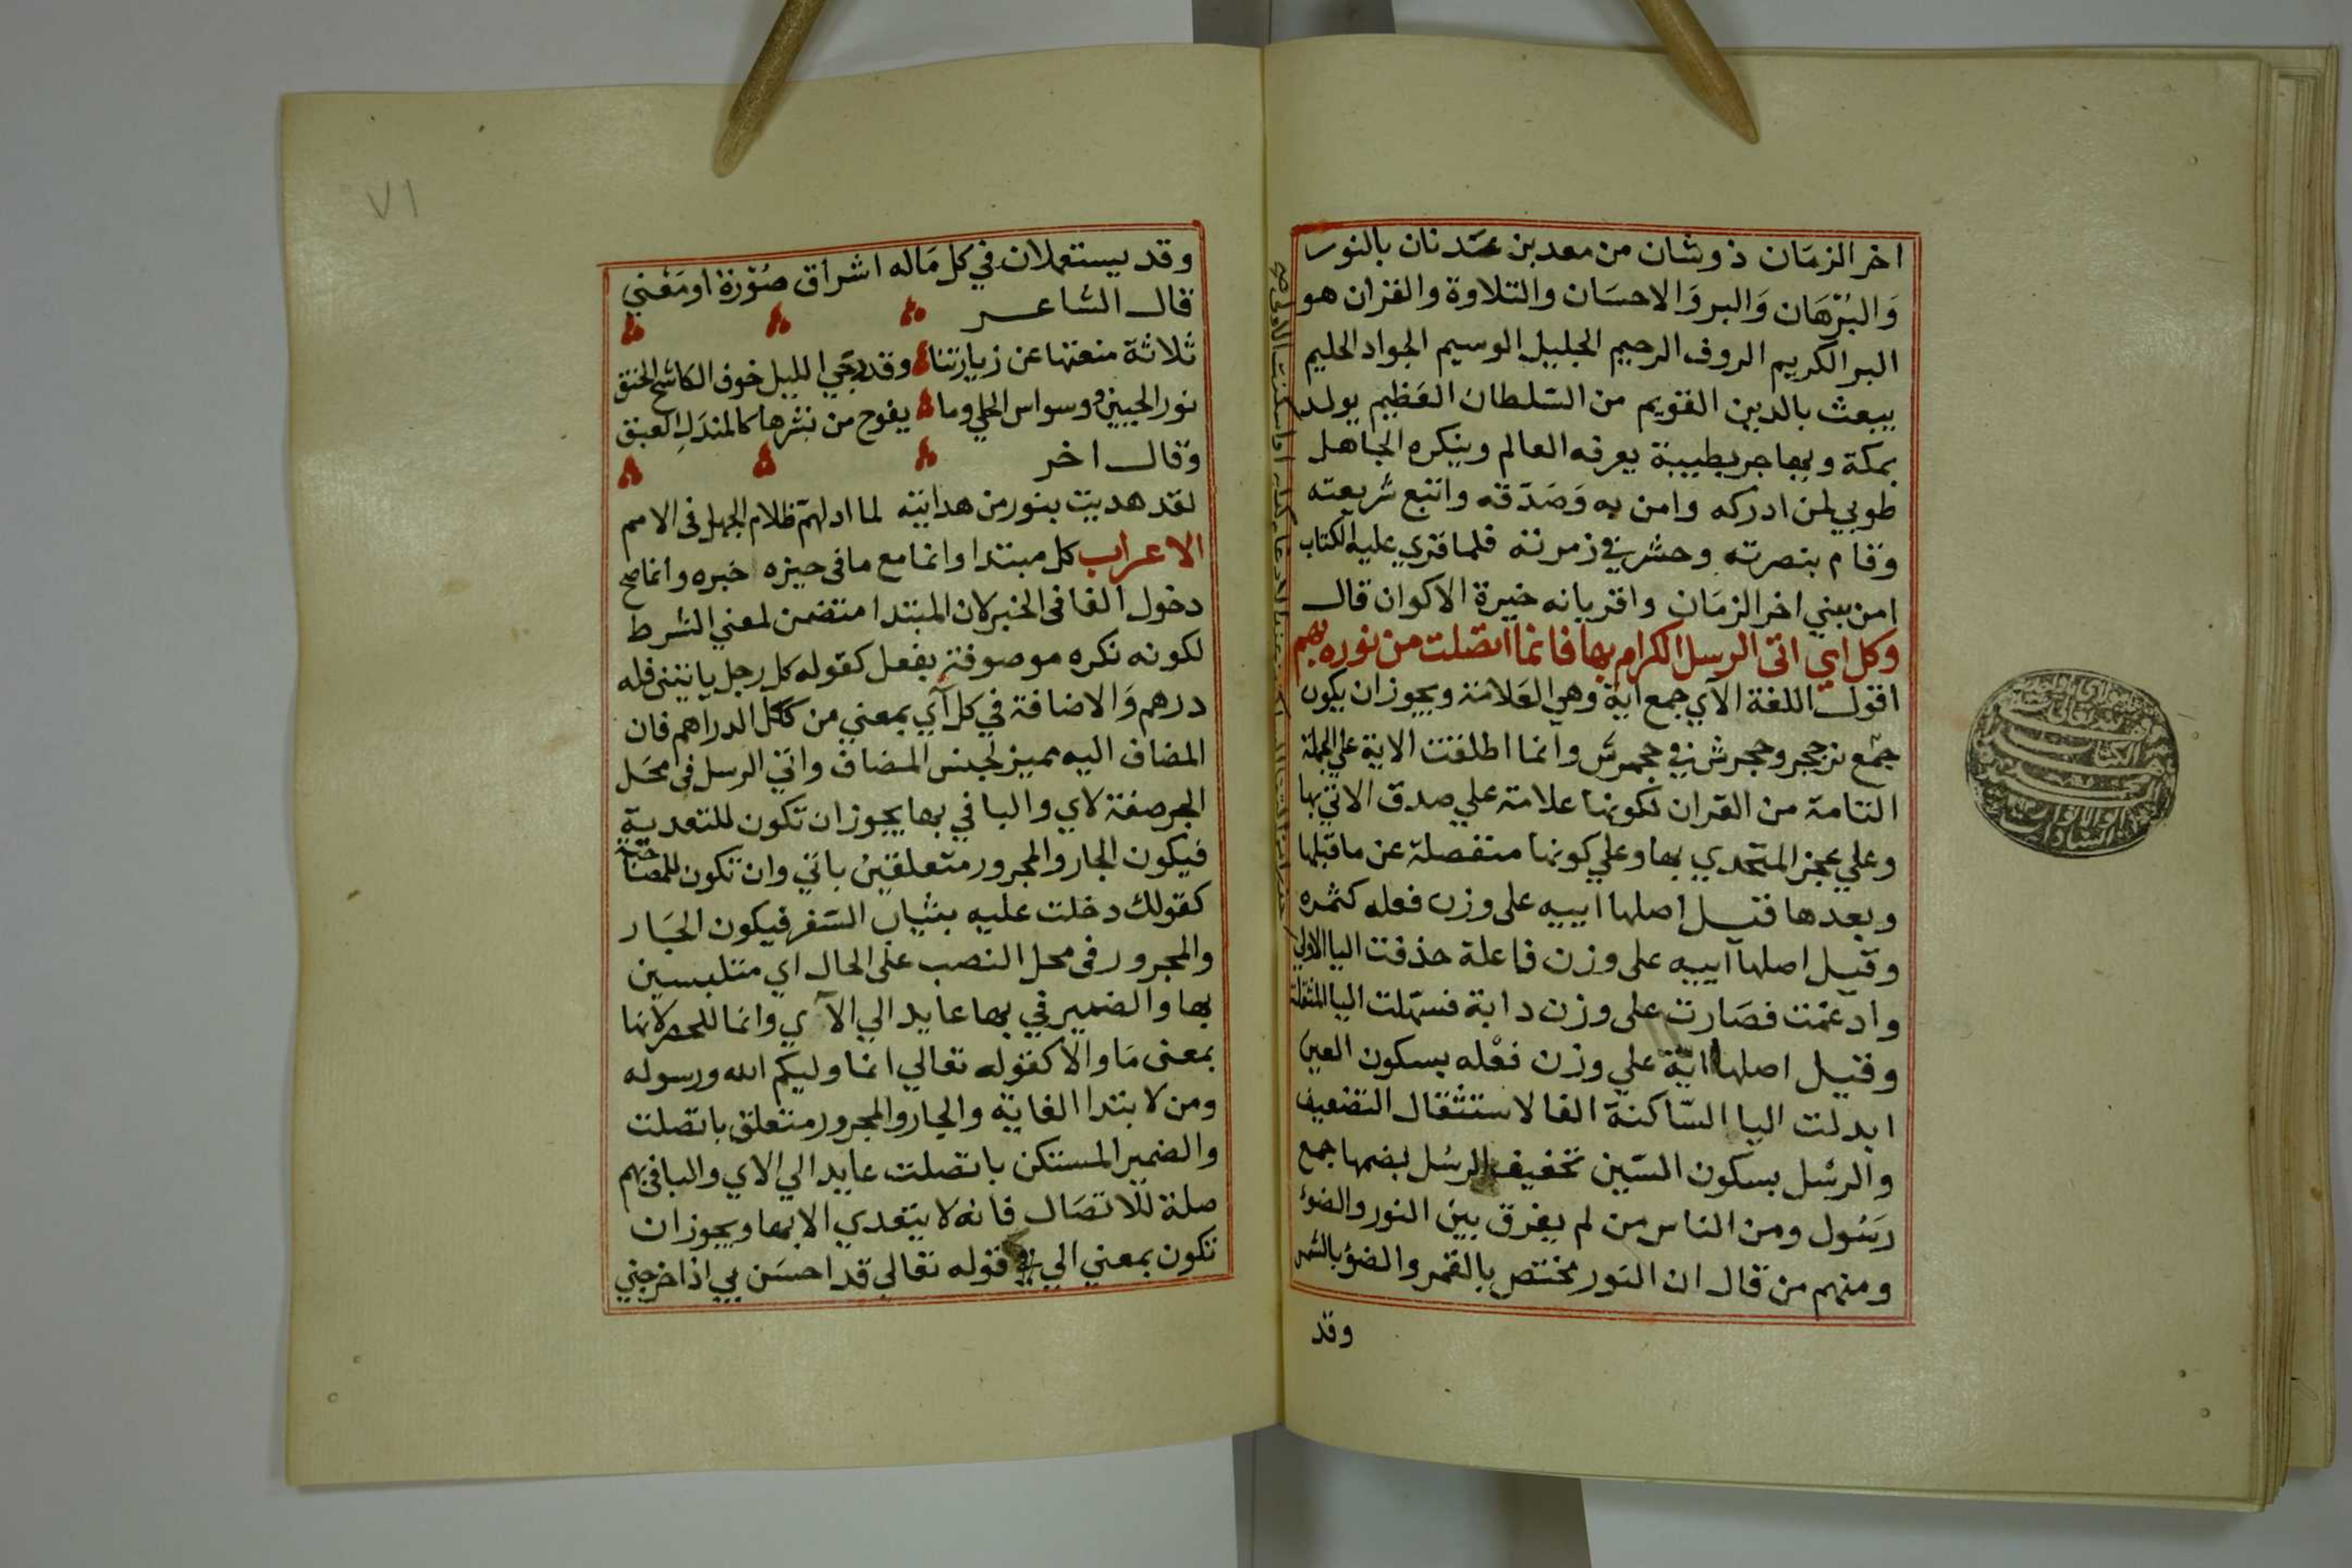 اخر الزمَان ذو شان من معد بن عَدنان بالنور
وَالبُرْهَان وَالبر وَالاحسَان والتلاوة والقران هو
البر الكريم الروف الرحيم الجليل الوسيم الجواد الحليم
يبعث بالدين القويم من السّلطان العَظيم يولد
بمكة ويهاجر بطيبة يعرفه العالم وينكره الجاهل
طوبي لمن ادركه وامن به وَصَدّقه واتبع شريعته
وقام بنصرته وحشر في زمرته فلما قري عليه الكتاب
امن بنبي اخر الزمَان واقر بانه خيرة الاكوان قال
وكل اي اتى الرسل الكرام بها فانما اتصلت من نوره بهم
اقول اللغة الآي جمع اية وهي العَلامَة ويجوز ان يكون
جمْع وانما اطلقت الاية علي الجملة
التامة من القران لكونها علامة علي صدق الاتي بها
وعلي عجز المتحدي بها وعلي كونها منفصلة عن ما قبلها
وبعدها قيل اصلها اييه على وزن فعله كثمره
وقيل اصلها آييه على وزن فاعلة حذفت اليا الاولي
وادغمت فصَارت على وزن دابة فسهّلت اليا المثقلة
وقيل اصلها ايّة علي وزن فعْله بسكون العين
ابدلت اليا السّاكنة الفا لاستثقال التضعيف
والرسْل بسكون السّين تخفيف الرسُل بضمها جمع
رسُول ومن الناس من لم يفرق بين النور والضوء
ومنهم من قال ان النور مختص بالقمر والضوء بالشمس
وقد
٧١
وقد يستعملان في كل مَاله اشراق صُوْرة او مَعْني
قال الشاعر
ثلاثة منعتها عن زيارتنا وقد دجي الليل خوف الكاشح الحنق
نور الجبين ووسواس الحلي وما يفوح من نشرها كالمندَل العبق
وقال اخر
لقد هديت بنور من هدايته لما ادلهمّ ظلام الجهل فى الامم
الاعراب كل مبتدا وانما مع ما فى حيزه خبره وانما صح
دخول الفا فى الخبر لان المبتدا متضمن لمعني الشرط
لكونه نكره موصوفة بفعل كقوله كل رجل ياتينى فله
درهم وَالاضافة في كل آي بمعني من ككل الدراهم فان
المضاف اليه مميز لجنس المضاف واتي الرسل فى محَل
الجر صفة لاي والبا في بها يجوز ان تكون للتعدية
فيكون الجار والمجرور متعلقين باتي وان تكون للمصَاحبة
كقولك دخلت عليه بثياب السّفر فيكون الجَار
والمجرور فى محل النصب على الحال اي متلبسين
بها والضمير في بها عايد الي الآي وانما للحصر لانها
بمعنى مَا وَالا كقوله تعالي انما وليكم الله ورسوله
ومن لابتدا الغاية والجار والمجرور متعلق باتصلت
والضمير المستكن باتصلت عايد الي الاي والبا فى بهم
صلة للاتصَال فانه لا يتعدي الا بها ويجوز ان
تكون بمعني الي في قوله تعالي قد احسَن بي اذ اخرجني